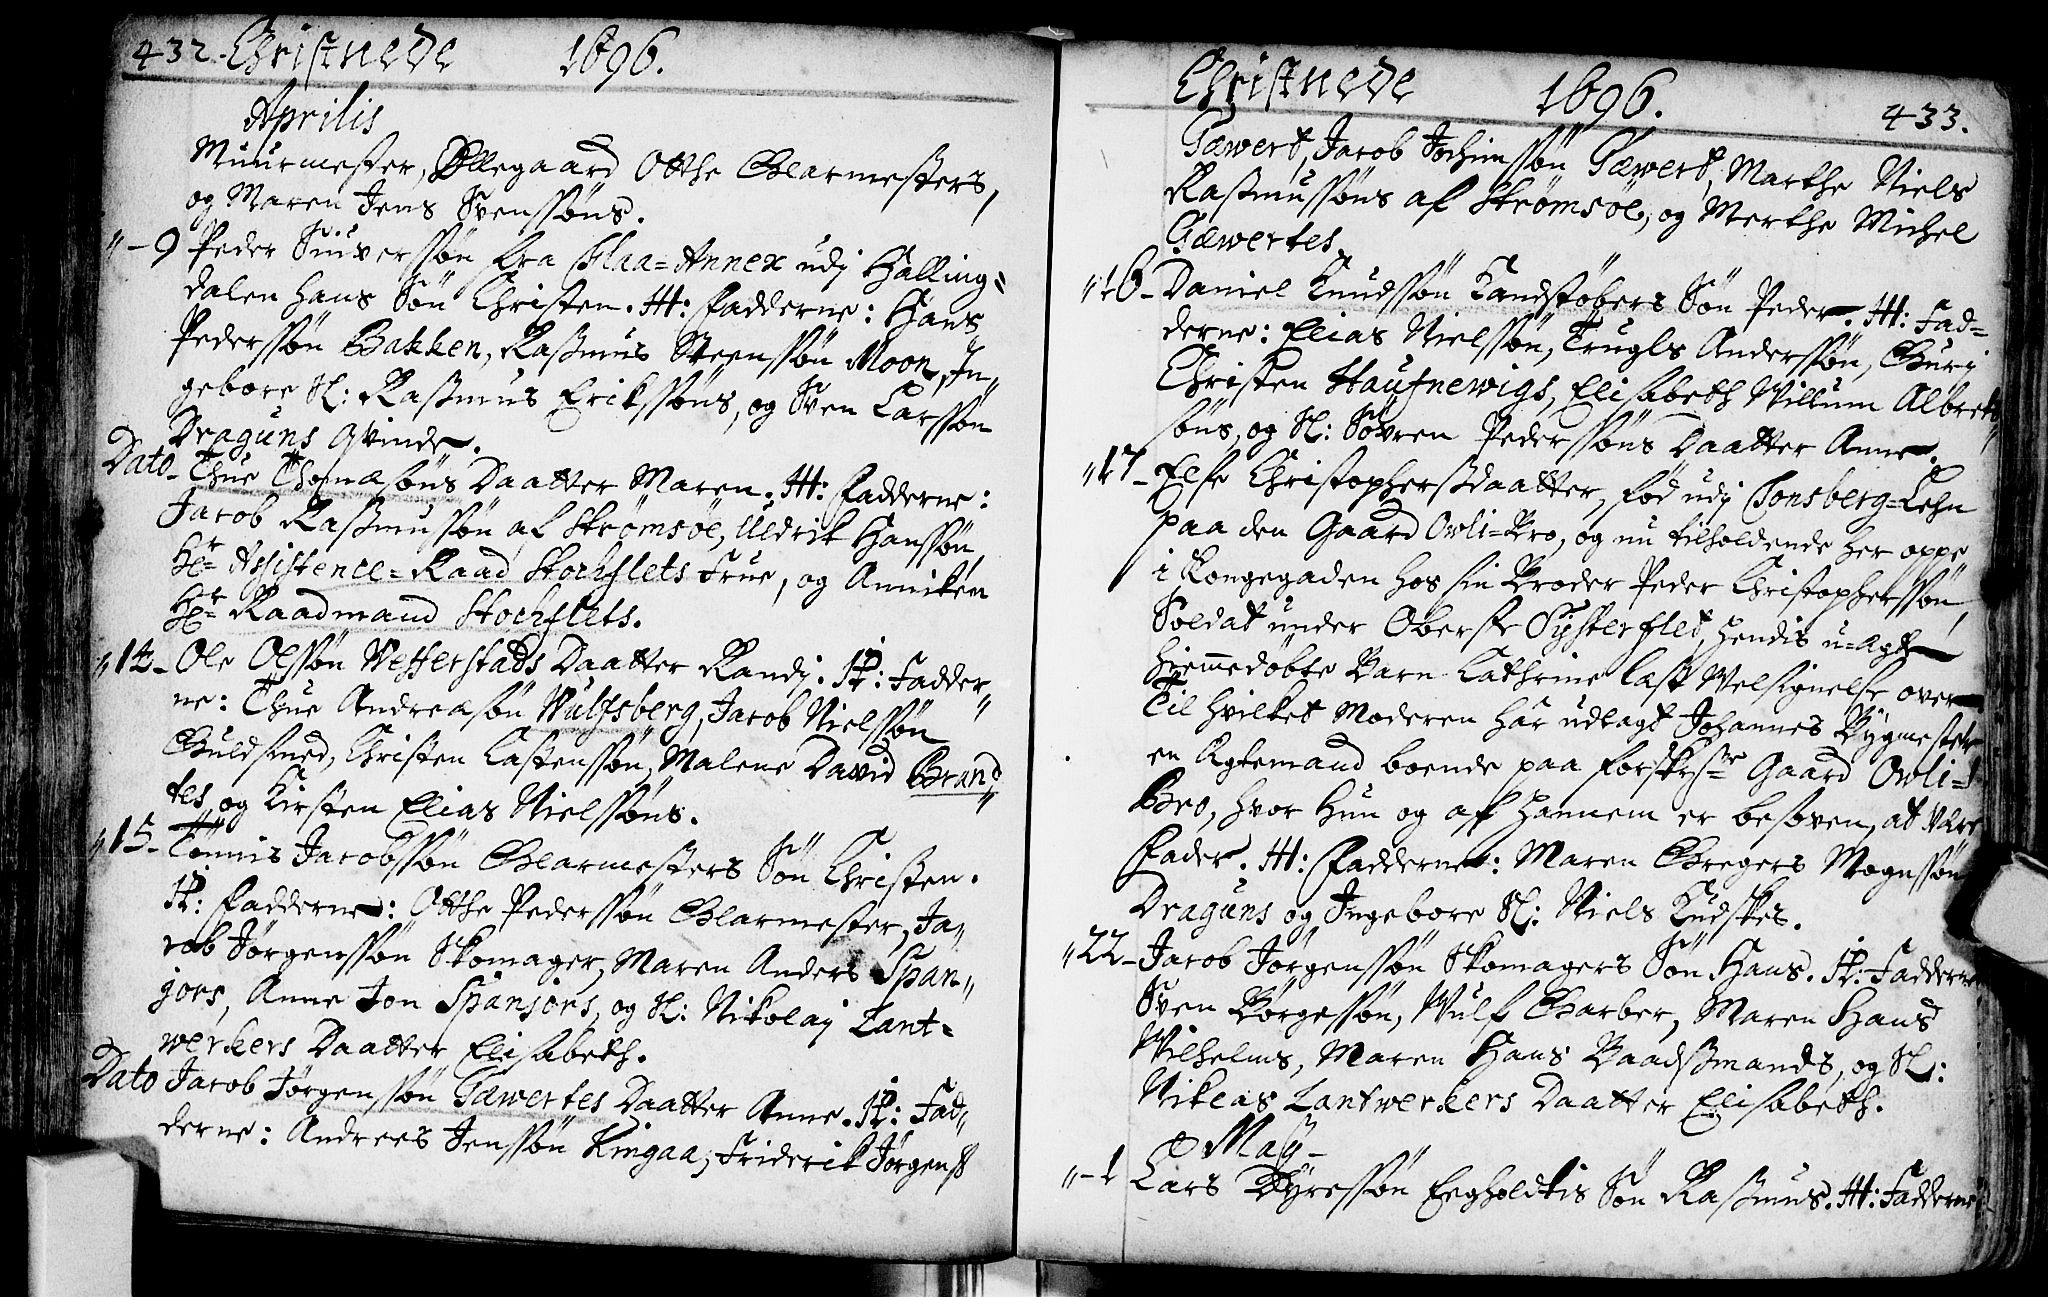 432. Christnede 1696.
Aprilis
Muurmester, Ellegaard Otthe Glarmesters,
og Maren Jens Svenssøns.
"-9 Peder Siuverssøn fra Flaa=Annex udj Halling=
dalen hans Søn Christen. H: Fadderne: Hans
Pederssøn Bakken, Rasmus Steenssøn Moon, In=
geborg Sl: Rasmus Erikssøns, og Sven Larssøn
Draguns Qvinde.
Dato- Thue Thomæsøns Daatter Maren. H: Fadderne:
Jacob Rasmussøn af Strømsøe, Uldrik Hanssøn,
Hr Assistence=Raad Stochflets Frue, og Anniken
Hr Raadmand Stochflets.
"14- Ole Olssøn Vefferstads Daatter Randj. H: Fadder=
ne: Thue Andreasøn Wulfsberg, Jacob Nielssøn
Guldsmed, Christen Castenssøn, Malene David Brand=
tes, og Kirsten Elias Nielssøns.
"15- Tønnis Jacobssøn Glarmesters Søn Christen.
H: Fadderne: Otthe Pederssøn Glarmester, Ja=
cob Jørgenssøn Skomager, Maren Anders Span=
jors, Anne Jon Spanjors, og Sl: Nikolaj Lant=
werkers Daatter Elisabeth.
Dato Jacob Jørgenssøn Tæwertes Daatter Anne. H: Fad=
derne: Andrees Jenssøn Kingaa, Friderik Jørgenss
Christnede 1696. 433.
Tæwert, Jacob Jochimssøn Tæwert, Marthe Niels
Rasmussøns af Strømsøe, og Merthe Michel
Tæwertes.
"16- Daniel Knudssøn Kandstøbers Søn Peder. H: Fad=
derne: Elias Nielssøn, Trugls Anderssøn, Gurj
Christen Haufnewigs, Elisabeth Willum Albret=
søns, og Sl: Søvren Pederssøns Daatter Anne.
"17- Else Christophersdaatter, fød udj Tonsberg=Lehn
paa den Gaard Orli=Bro, og nu tilholdende her oppe
i Kongegaden hos sin Broder Peder Christopherssøn,
Soldat under Oberste Systerflet, hendis u=Agte
hiemmedøbte Barn Cathrine last Velsignelse over
Til hvilket Moderen har udlagt Johannes Bygmester
en Agtemand boende paa Gaard Orli=
Bro, hvor hun og af hannem er besoven, at være
Fader. H: Fadderne: Maren Gregers Mognssøn
Draguns og Ingeborg Sl: Niels Kudskes.
"22- Jacob Jørgenssøn Skomagers Søn Hans. H: Fadderne
Sven Børgessøn, Wulf Garber, Maren Hans
Wilhelms, Maren Hans Baadsmands, og Sl:
Niklas Lantwerkers Daatter Elisabeth.
Maij
"-1 Lars Dyressøn Eegholdtis Søn Rasmus. H: Fadderne: